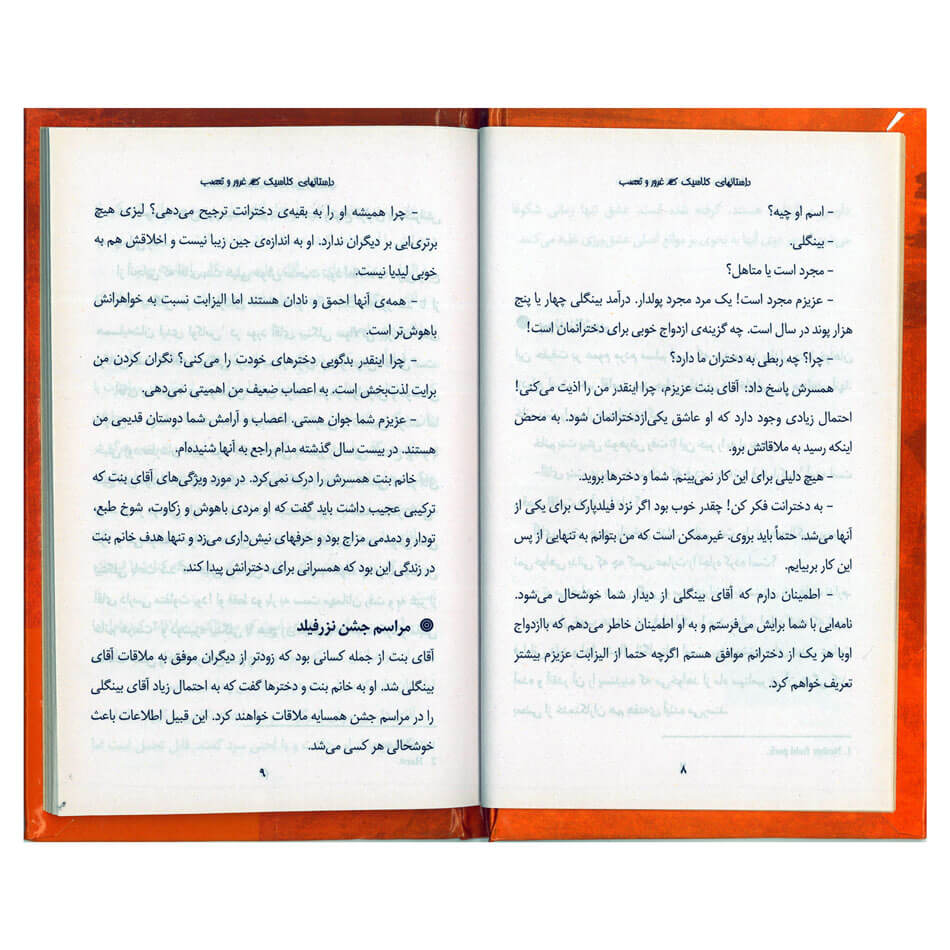 داستانهای کلاسیک غرور و تعصب
- اسم او چیه؟
- بینگلی.
- مجرد است یا متاهل؟
- عزیزم مجرد است! یک مرد مجرد پولدار. درآمد بینگلی چهار یا پنج
هزار پوند در سال است. چه گزینه‌ی ازدواج خوبی برای دخترانمان است!
- چرا؟ چه ربطی به دختران ما دارد؟
همسرش پاسخ داد: آقای بنت عزیزم، چرا اینقدر من را اذیت می‌کنی!
احتمال زیادی وجود دارد که او عاشق یکی‌ازدخترانمان شود. به محض
اینکه رسید به ملاقاتش برو.
- هیچ دلیلی برای این کار نمی‌بینم. شما و دخترها بروید.
- به دخترانت فکر کن! چقدر خوب بود اگر نزد فیلدپارک برای یکی از
آنها می‌شد. حتماً باید بروی. غیرممکن است که من بتوانم به تنهایی از پس
این کار بربیایم.
- اطمینان دارم که آقای بینگلی از دیدار شما خوشحال می‌شود.
نامه‌ایی با شما برایش می‌فرستم و به او اطمینان خاطر می‌دهم که باازدواج
اوبا هر یک از دخترانم موافق هستم اگرچه حتما از الیزابت عزیزم بیشتر
تعریف خواهم کرد.
۸
داستانهای کلاسیک غرور و تعصب
- چرا همیشه او را به بقیه‌ی دخترانت ترجیح می‌دهی؟ لیزی هیچ
برتری‌ایی بر دیگران ندارد. او به اندازه‌ی جین زیبا نیست و اخلاقش هم به
خوبی لیدیا نیست.
- همه‌ی آنها احمق و نادان هستند اما الیزابت نسبت به خواهرانش
باهوش‌تر است.
- چرا اینقدر بدگویی دخترهای خودت را می‌کنی؟ نگران کردن من
برایت لذت‌بخش است. به اعصاب ضعیف من اهمیتی نمی‌دهی.
- عزیزم شما جوان هستی. اعصاب و آرامش شما دوستان قدیمی من
هستند. در بیست سال گذشته مدام راجع به آنها شنیده‌ام.
خانم بنت همسرش را درک نمی‌کرد. در مورد ویژگی‌های آقای بنت که
ترکیبی عجیب داشت باید گفت که او مردی باهوش و زکاوت، شوخ طبع،
تودار و دمدمی مزاج بود و حرفهای نیش‌داری می‌زد و تنها هدف خانم بنت
در زندگی این بود که همسرانی برای دخترانش پیدا کند.
مراسم جشن نزرفیلد
آقای بنت از جمله کسانی بود که زودتر از دیگران موفق به ملاقات آقای
بینگلی شد. او به خانم بنت و دخترها گفت که به احتمال زیاد آقای بینگلی
را در مراسم جشن همسایه ملاقات خواهند کرد. این قبیل اطلاعات باعث
خوشحالی هر کسی می‌شد.
۹